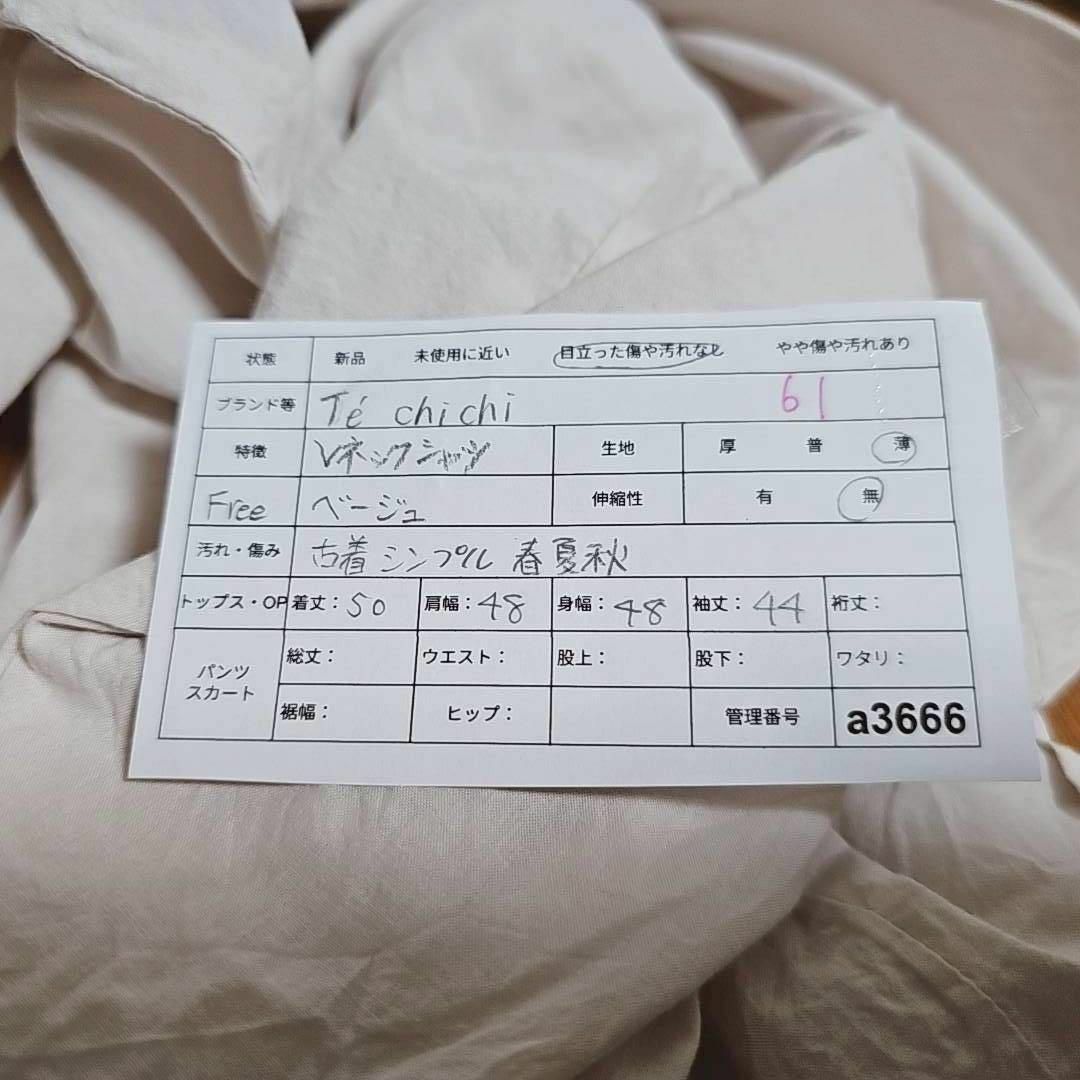 状態 新品 未使用に近い 目立った傷や汚れなし やや傷や汚れあり
ブランド等 Té chichi 61
特徴 Vネックシャツ 生地 厚 普 薄
Free ベージュ 伸縮性 有 無
汚れ・傷み 古着 シンプル 春夏秋
トップス・OP 着丈：50 肩幅：48 身幅：48 袖丈：44 裄丈：
パンツ 総丈： ウエスト： 股上： 股下： ワタリ：
スカート
裾幅： ヒップ： 管理番号 a3666